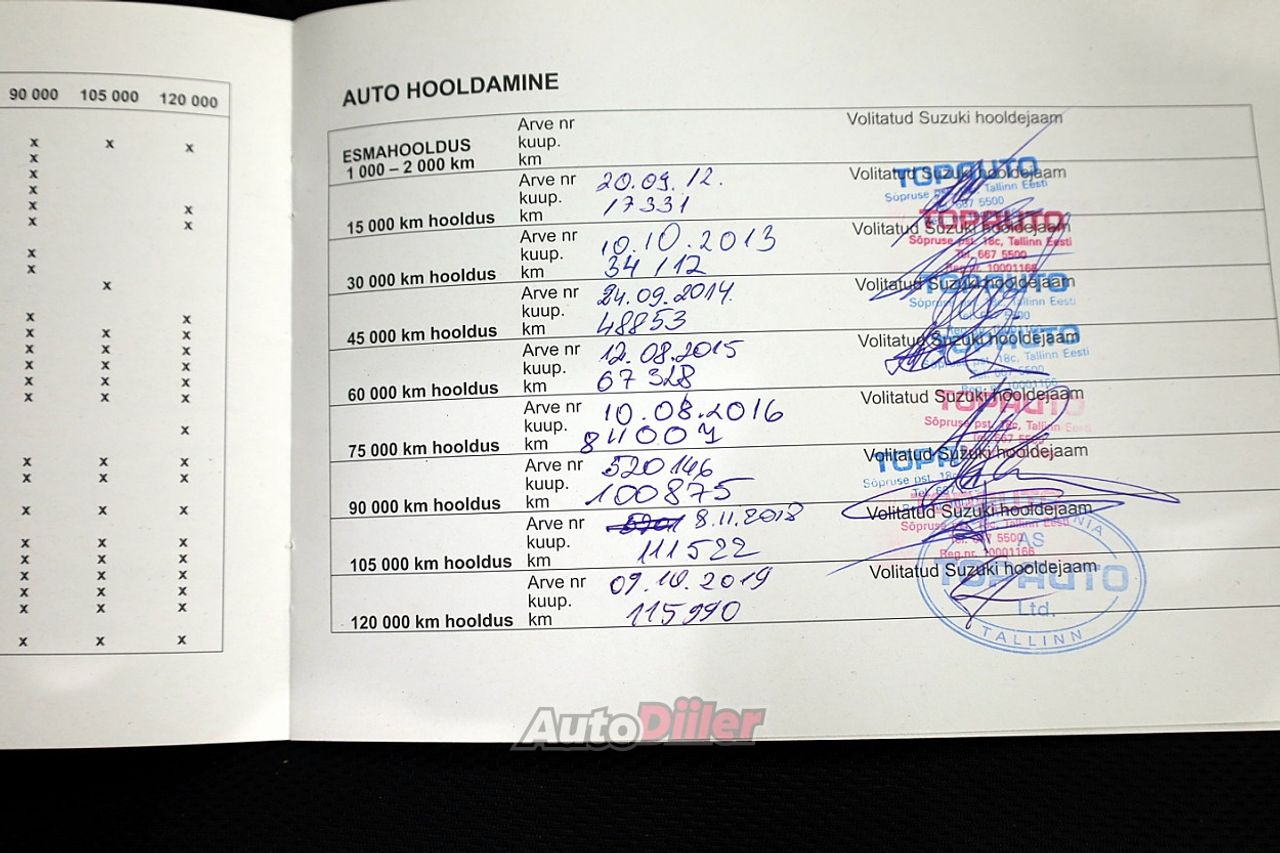 90 000 105 000 120 000
x x x
x
x
x
x x
x x
x
x
x
x x
x x x
x x x
x x x
x x x
x x x
x
x x x
x x x
x x x
x x x
x x x
x x x
x x x
x x x
x x x
AUTO HOOLDAMINE
ESMAHOOLDUS
1 000 – 2 000 km
Arve nr
kuup.
km
Volitatud Suzuki hooldejaam
15 000 km hooldus
Arve nr
kuup. 20.09.12.
km 17331
Volitatud Suzuki hooldejaam
TOPAUTO
Sõpruse pst. Tallinn Eesti
667 5500
30 000 km hooldus
Arve nr
kuup. 10.10.2013
km 34112
Volitatud Suzuki hooldejaam
TOPAUTO
Sõpruse pst. 18c, Tallinn Eesti
Tel. 667 5500
Reg.nr. 10001166
45 000 km hooldus
Arve nr
kuup. 24.09.2014.
km 48853
Volitatud Suzuki hooldejaam
TOPAUTO
Tallinn Eesti
60 000 km hooldus
Arve nr
kuup. 12.08.2015
km 67328
Volitatud Suzuki hooldejaam
TOPAUTO
pst. 18c, Tallinn Eesti
10001166
75 000 km hooldus
Arve nr
kuup. 10.08.2016
km
Volitatud Suzuki hooldejaam
TOPAUTO
Sõpruse pst. 18c, Tallinn
90 000 km hooldus
Arve nr 520146
kuup.
km 100875
Volitatud Suzuki hooldejaam
Sõpruse pst. 18c
105 000 km hooldus
Arve nr 8.11.2018
kuup.
km 111522
Volitatud Suzuki hooldejaam
Tallinn Eesti
Tel. 667 5500
Reg.nr. 10001166
120 000 km hooldus
Arve nr 09.10.2019
kuup.
km 115990
Volitatud Suzuki hooldejaam
AS
TOPAUTO
Ltd.
TALLINN
AutoDiiler